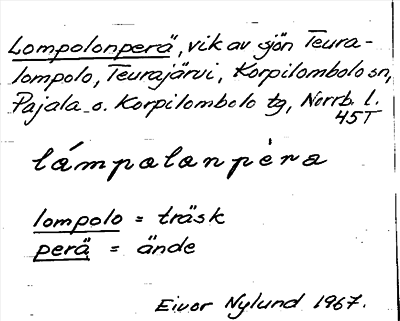 Lompolonperä, vik av sjön Teura-
lompolo, Teurajärvi, Korpilombolo sn,
Pajala o. Korpilombolo tg, Norrb. l.
45T
lámpalanpèra
lompolo = träsk
perä = ände
Eivor Nylund 1967.